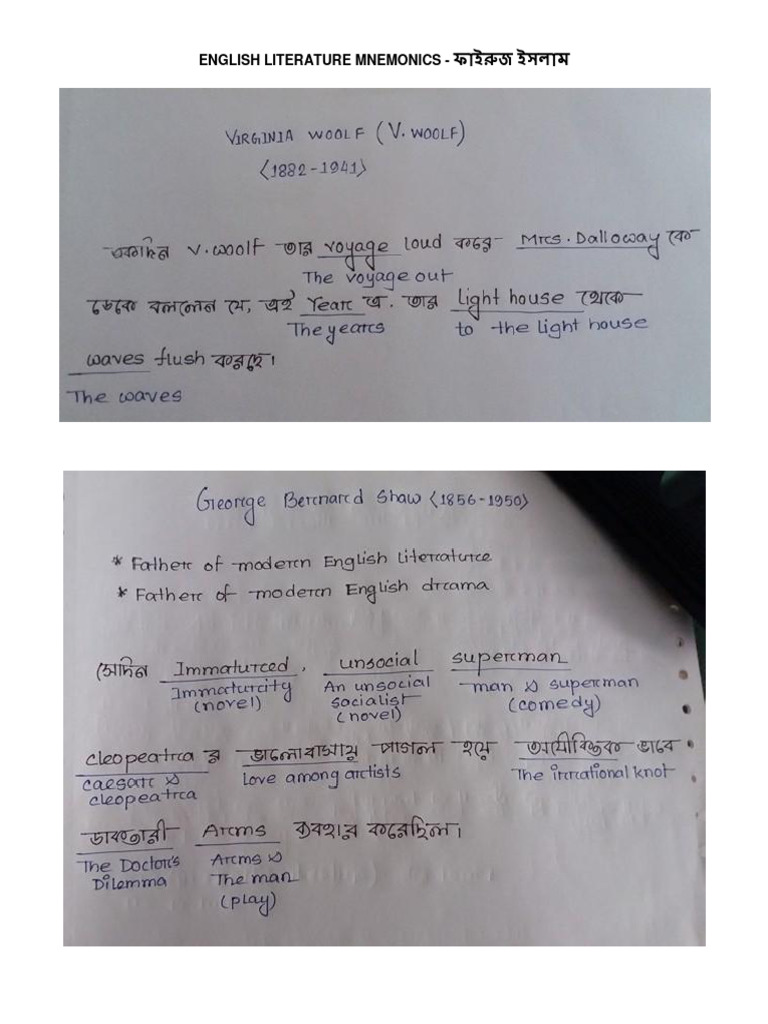 ENGLISH LITERATURE MNEMONICS - ফাইরুজ ইসলাম
VIRGINIA WOOLF (V. WOOLF)
<1882-1941>
একদিন V. Woolf তার voyage loud করে Mrs. Dalloway কে
The voyage out
ডেকে বললেন যে, এই Year এ. তার Light house থেকে
The years to the Light house
waves flush করছে।
The waves
George Bernard Shaw <1856-1950>
* Father of modern English literature
* Father of modern English drama
সেদিন Immatured, unsocial superman
Immaturity An unsocial man & superman
(novel) socialist (comedy)
(novel)
cleopeatra র ভালোবাসায় পাগল হয়ে অযৌক্তিক ভাবে
caesar & Love among artists The irrational knot
cleopeatra
ডাক্তারী Arms ব্যবহার করেছিল।
The Doctor's Arms &
Dilemma The man
(play)